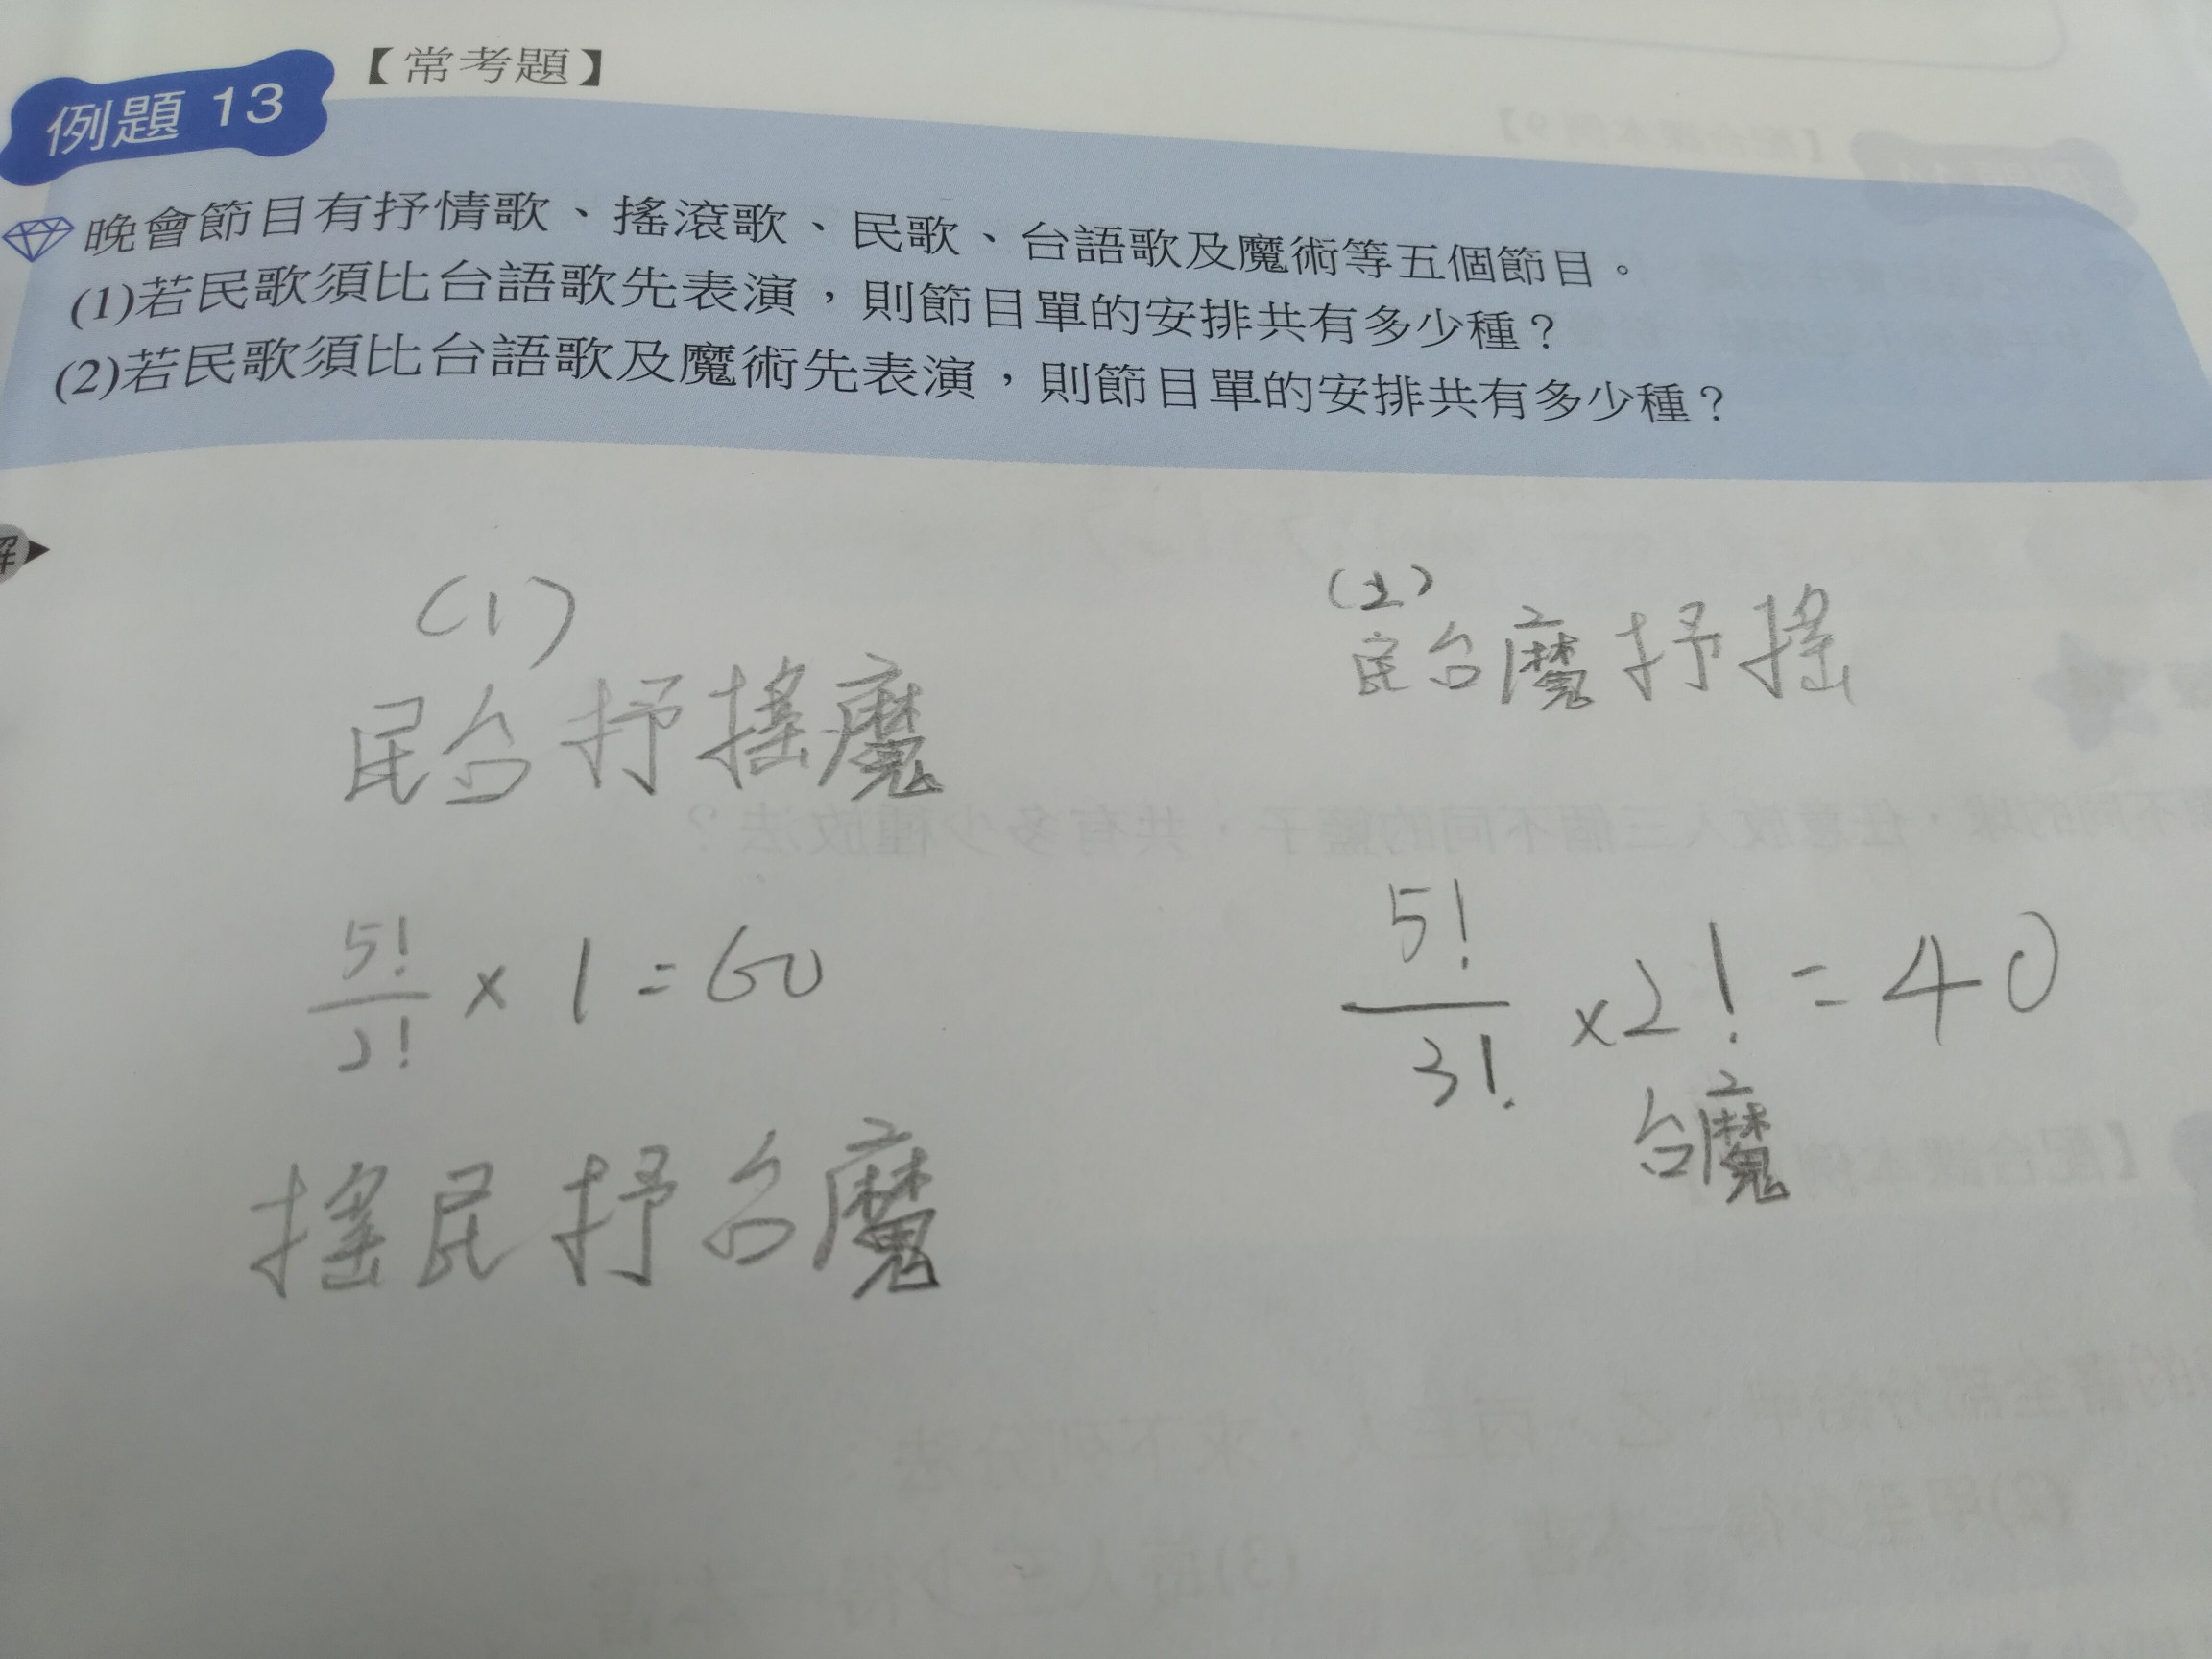 【常考題】
例題 13
晚會節目有抒情歌、搖滾歌、民歌、台語歌及魔術等五個節目。
(1)若民歌須比台語歌先表演，則節目單的安排共有多少種？
(2)若民歌須比台語歌及魔術先表演，則節目單的安排共有多少種？
解
(1)
民台抒搖魔
5!/2! × 1 = 60
搖民抒台魔
(2)
民台魔抒搖
5!/3! × 2! = 40
台魔